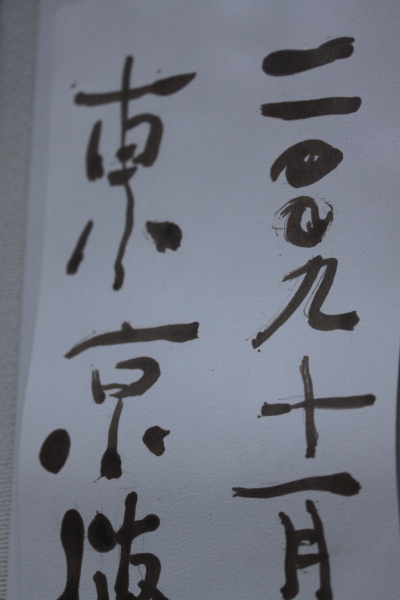 二〇〇九十一月
東京